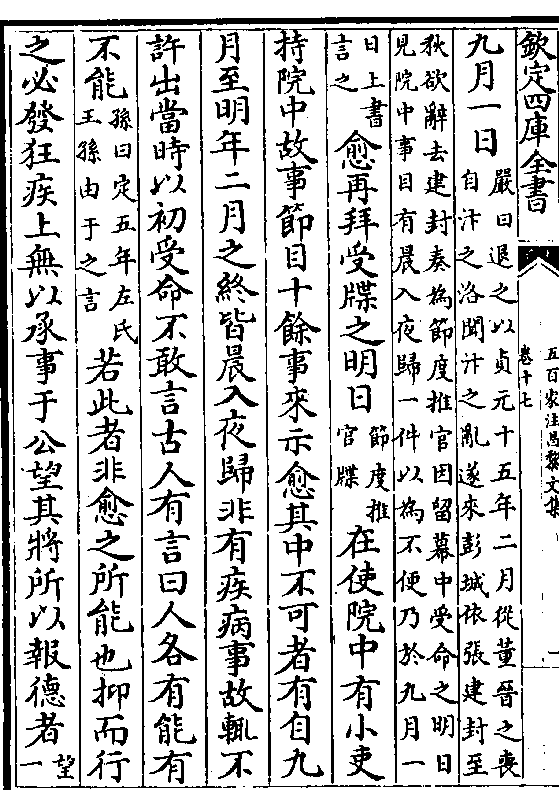 欽定四庫全書
五百家注昌黎文集
卷十七
一
九月一日
嚴曰退之以貞元十五年二月從董晉之喪
自汴之洛聞汴之亂遂來彭城依張建封至
秋欲辭去建封奏為節度推官因留幕中受命之明日
見院中事目有晨入夜歸一件以為不便乃於九月一
日上書
言之
愈再拜受牒之明日
節度推
官牒
在使院中有小吏
持院中故事節目十餘事來示愈其中不可者有自九
月至明年二月之終皆晨入夜歸非有疾病事故輒不
許出當時以初受命不敢言古人有言曰人各有能有
不能
孫曰定五年左氏
王孫由于之言
若此者非愈之所能也抑而行
之必發狂疾上無以承事于公望其將所以報德者
望
一